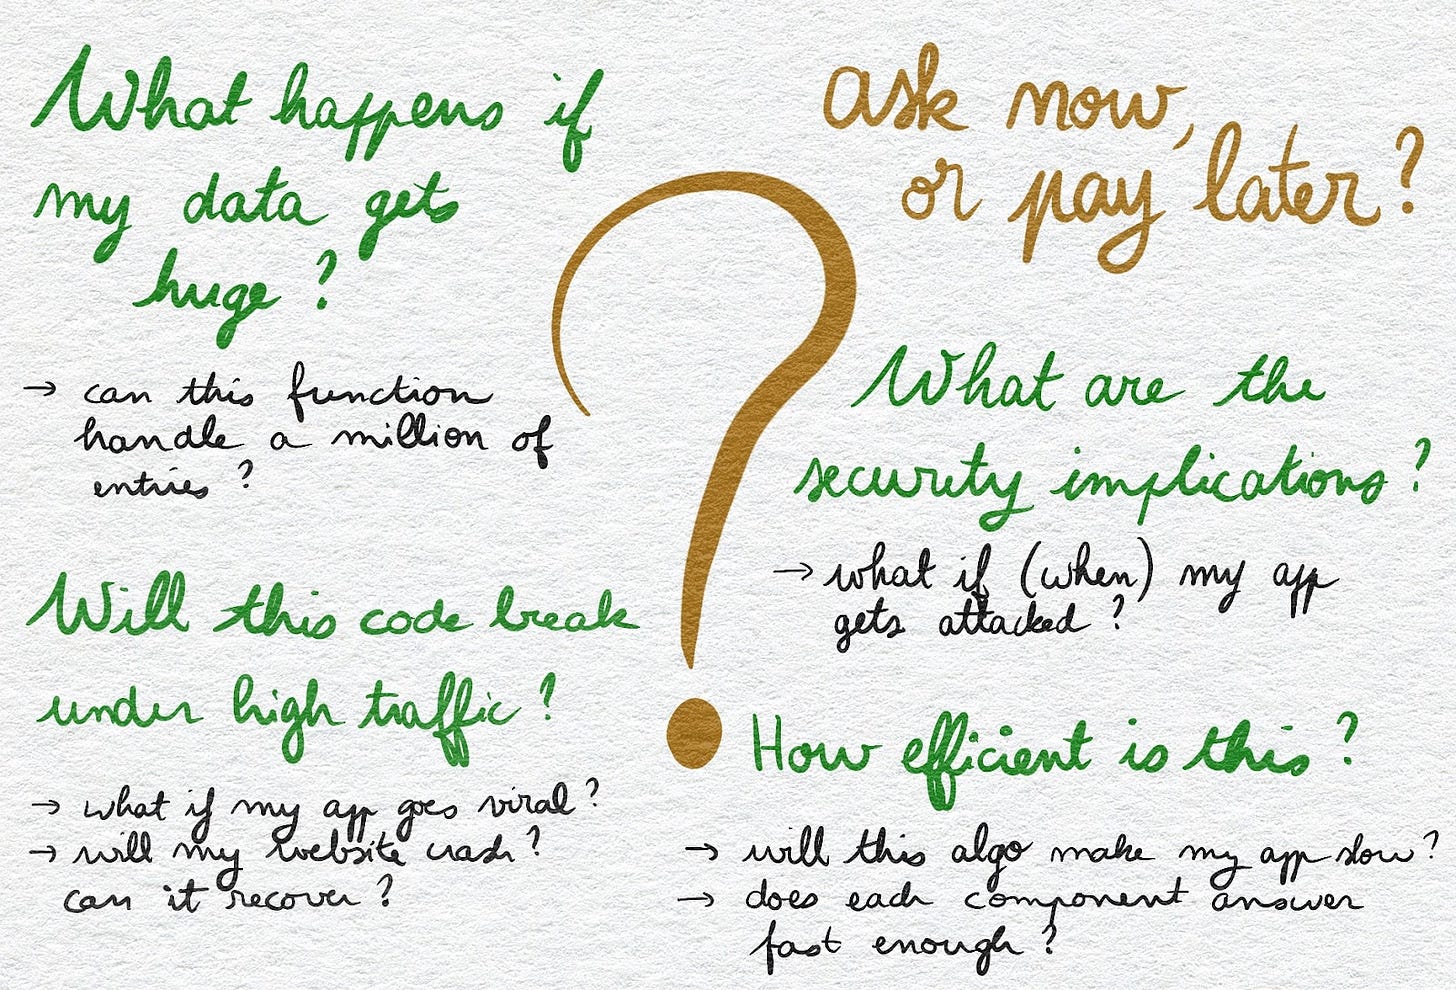 ask now,
or pay later?
What happens if
my data gets
huge?
→ can this function
handle a million of
entries?
What are the
security implications?
→ what if (when) my app
gets attacked?
Will this code break
under high traffic?
→ what if my app goes viral?
→ will my website crash?
can it recover?
How efficient is this?
→ will this algo make my app slow?
→ does each component answer
fast enough?